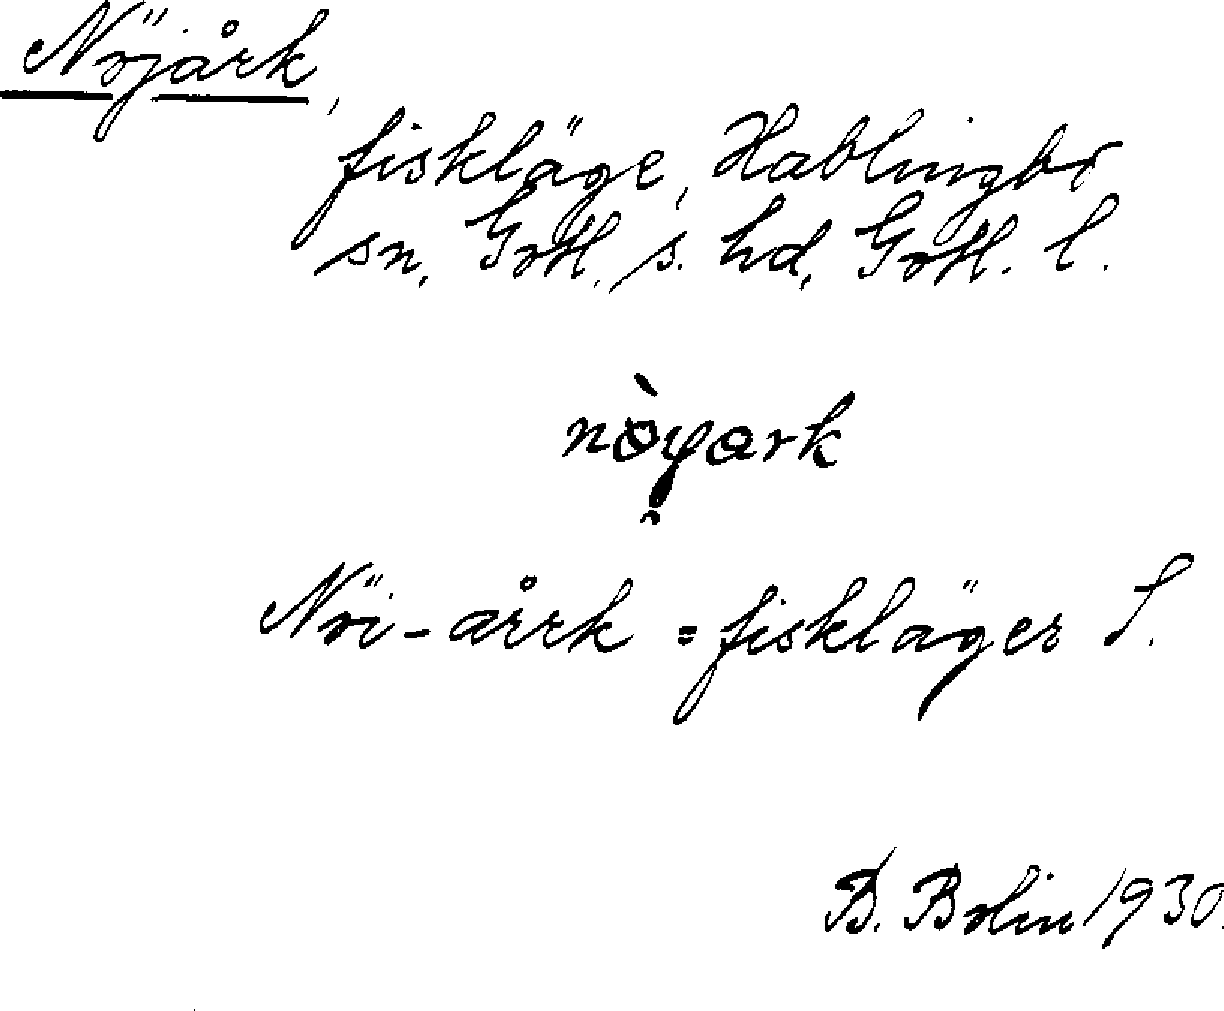 Nöjårk,
fiskläge, Hablingbo
sn, Gotl. s. hd, Gotl. l.
nòyark
Nöi-årrk = fiskläger S.
B. Bolin 1930.